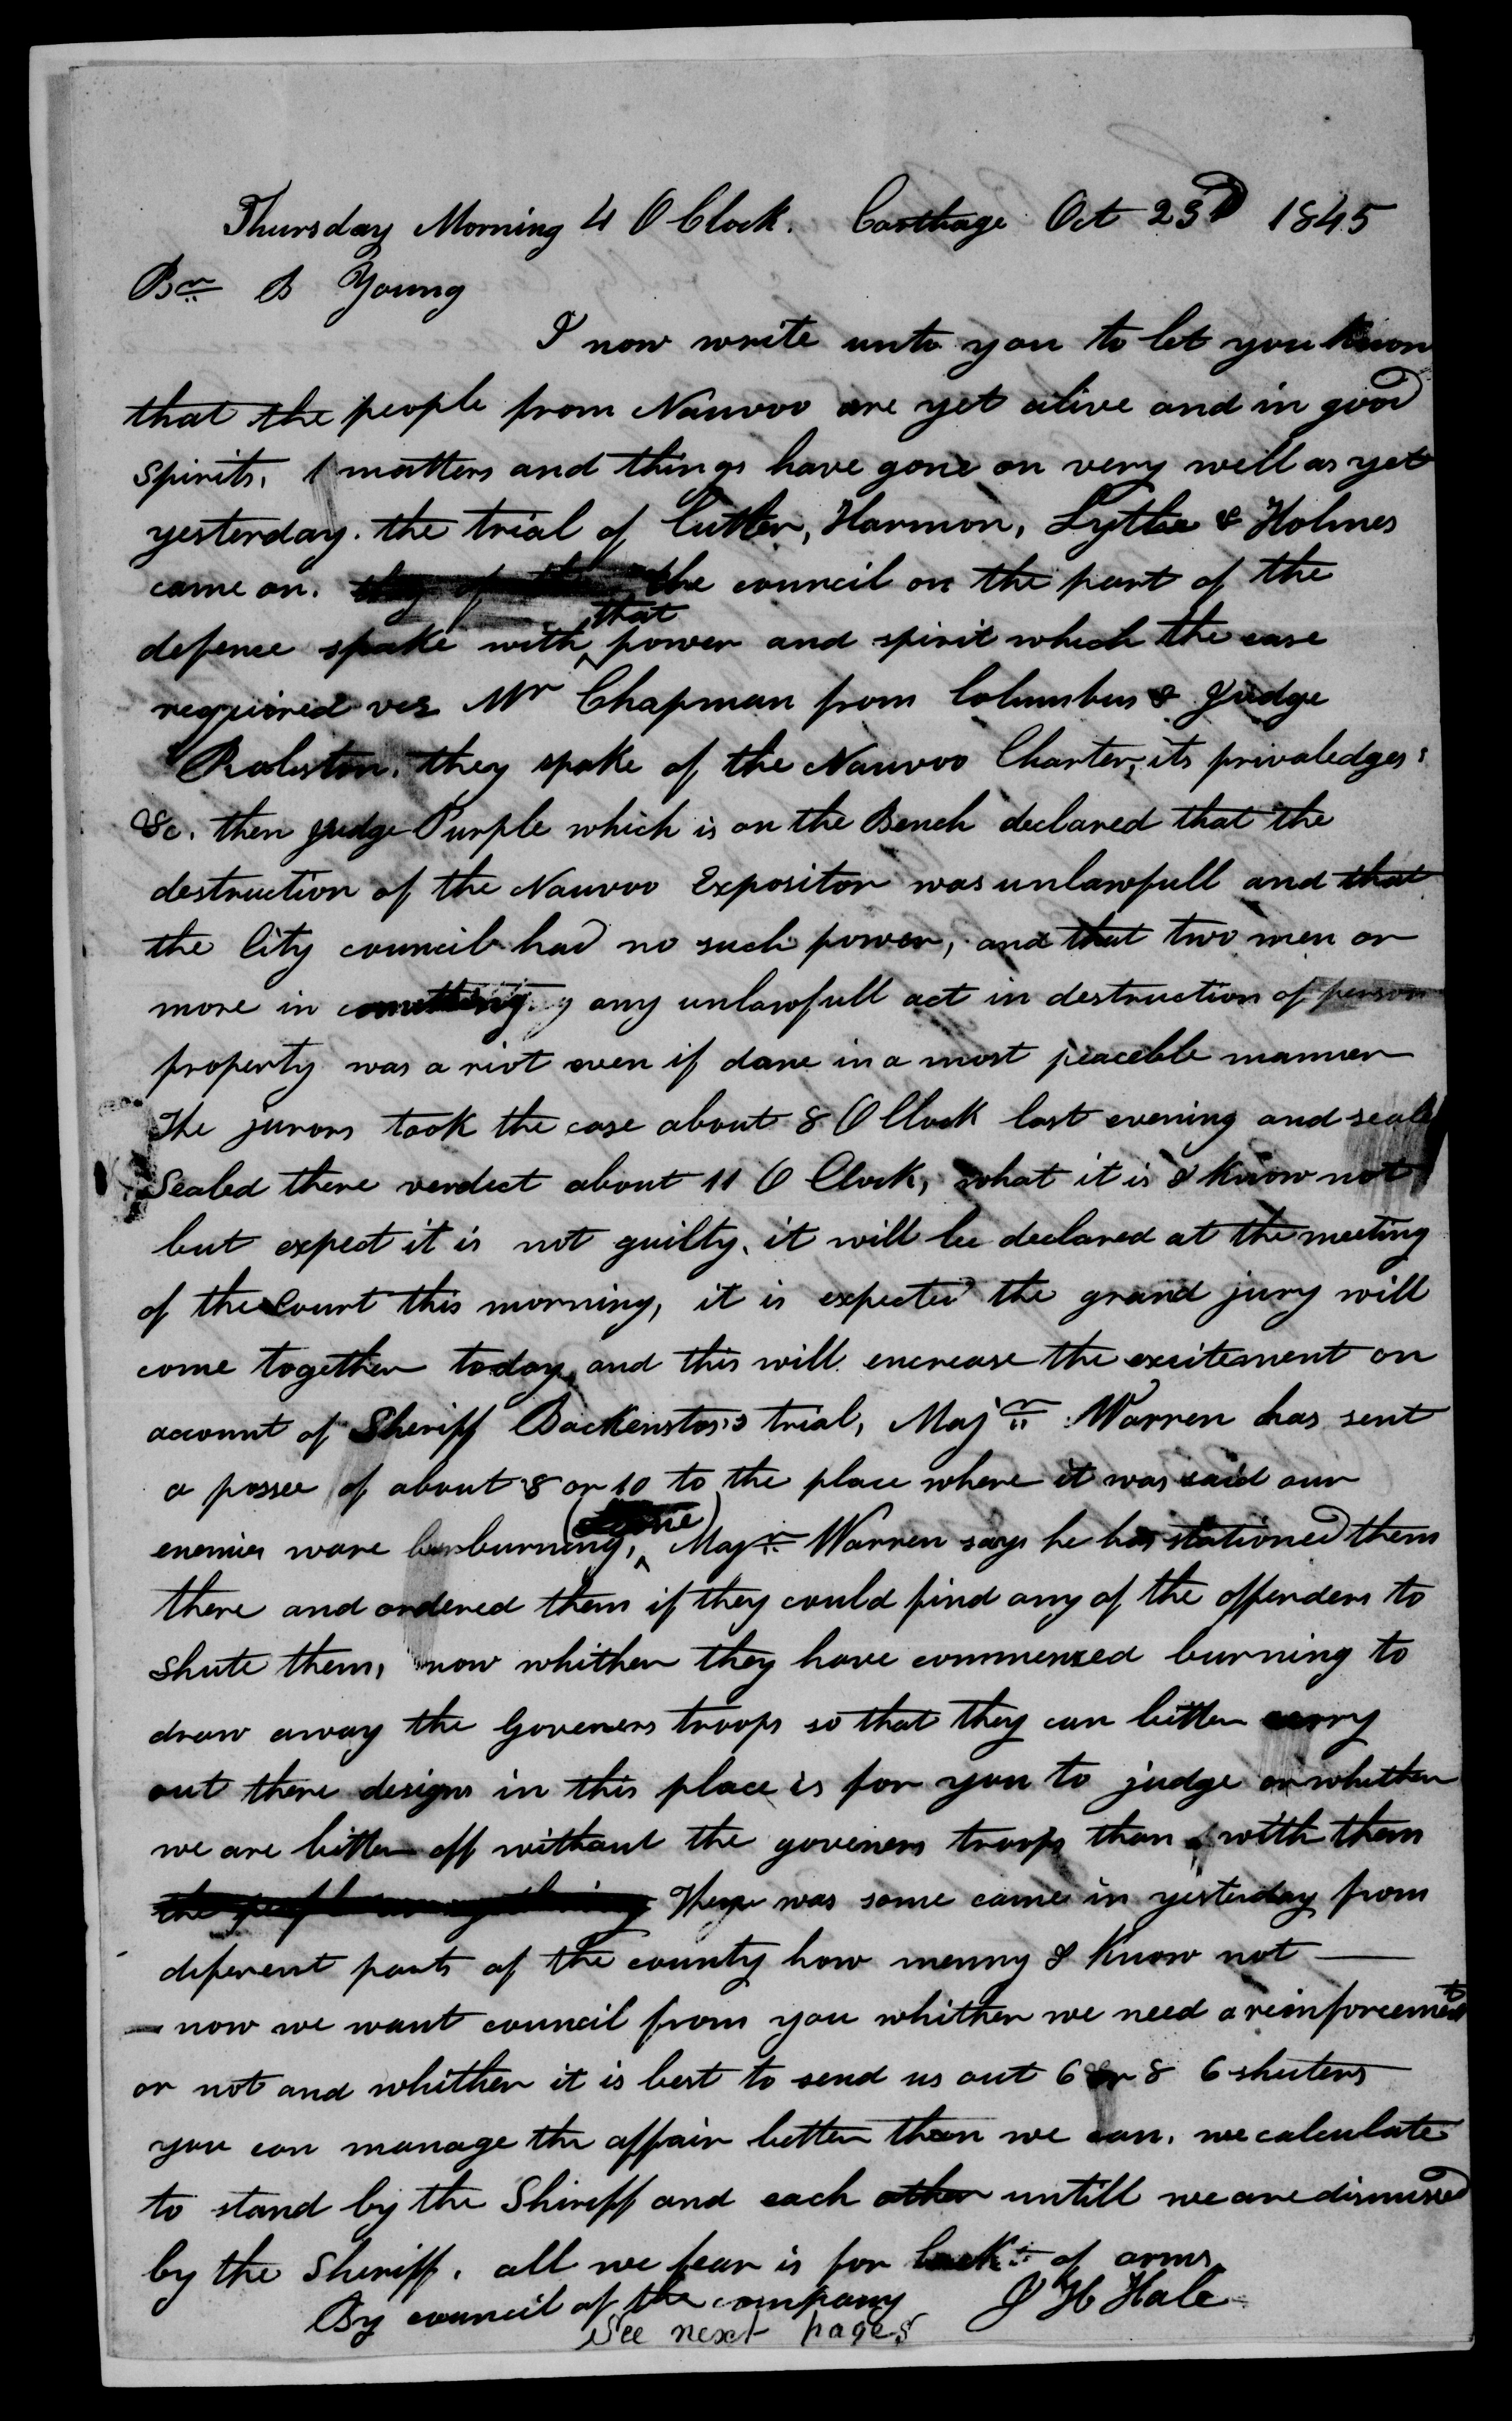 Thursday Morning 4 O Clock. Carthage Oct 23D 1845
Br B Young
I now write unto you to let you know
that the people from Nauvoo are yet alive and in good
spirits, matters and things have gone on very well as yet
yesterday. the trial of Cutler, Harmon, Lytle & Holmes
came on. the council on the part of the
defence spoke with that power and spirit which the case
required vez Mr Chapman from Columbus & Judge
Ralston. they spoke of the Nauvoo Charter, its privaledges
&c. then judge Purple which is on the Bench declared that the
destruction of the Nauvoo Expositor was unlawfull and that
the City council had no such power, and that two men or
more in any unlawfull act in destruction of person
property was a riot even if done in a most peaceble manner
The jurors took the case about 8 O Clock last evening and seale
Sealed there verdect about 11 O Clock, what it is I know not
but expect it is not guilty. it will be declared at the meeting
of the Court this morning, it is expected the grand jury will
come together today, and this will encrease the excitement on
account of Sheriff Backenstos's trial, Majr Warren has sent
a possee of about 8 or 10 to the place where it was said our
enemies ware burning, Majr Warren says he has stationed them
there and ordered them if they could find any of the offenders to
shute them, now whither they have commenced burning to
draw away the Goveners troops so that they can better carry
out there designs in this place is for you to judge or whither
we are better off without the goveners troops than with them
There was some came in yesterday from
diferent parts of the county how menny I know not —
— now we want council from you whither we need a reinforcement
or not and whither it is best to send us out 6 or 8 6 shuters
you can manage the affair better than we can. we calculate
to stand by the Shireff and each other untill we are dismissed
by the Sheriff. all we fear is for lack of arms.
By council of the company J H Hale
See next pages